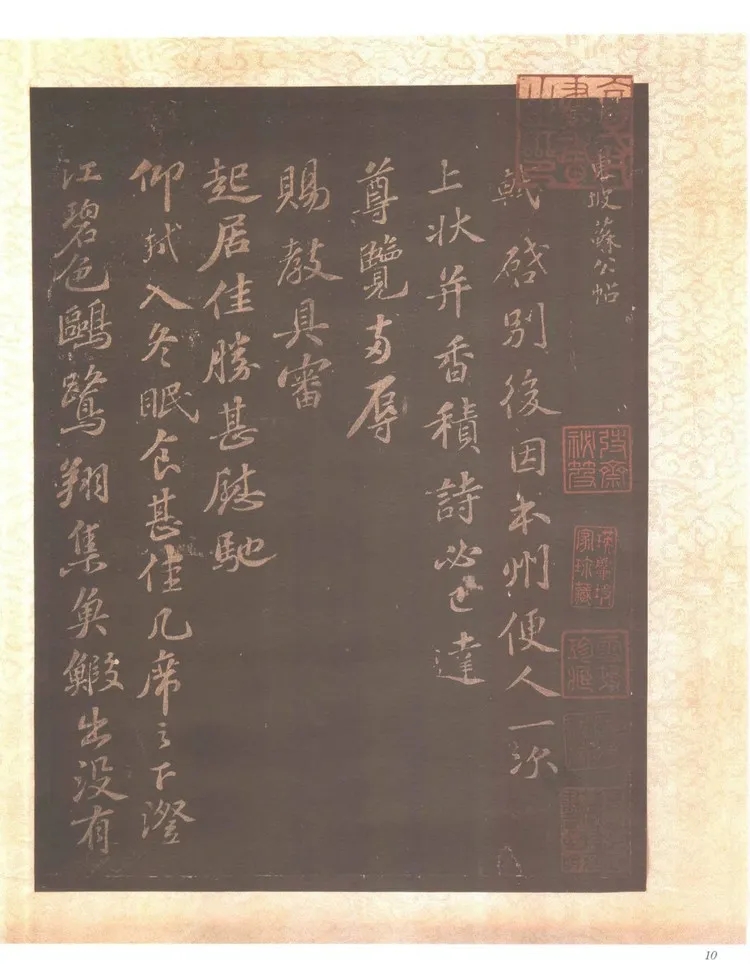 東坡蘇公帖
軾啓別後因本州便人一次
上狀并香積詩必已達
尊覽兩辱
賜教具審
起居佳勝甚慰馳
仰軾入冬眠食甚佳几席之下澄
江碧色鷗鷺翔集魚鰕出沒有
10